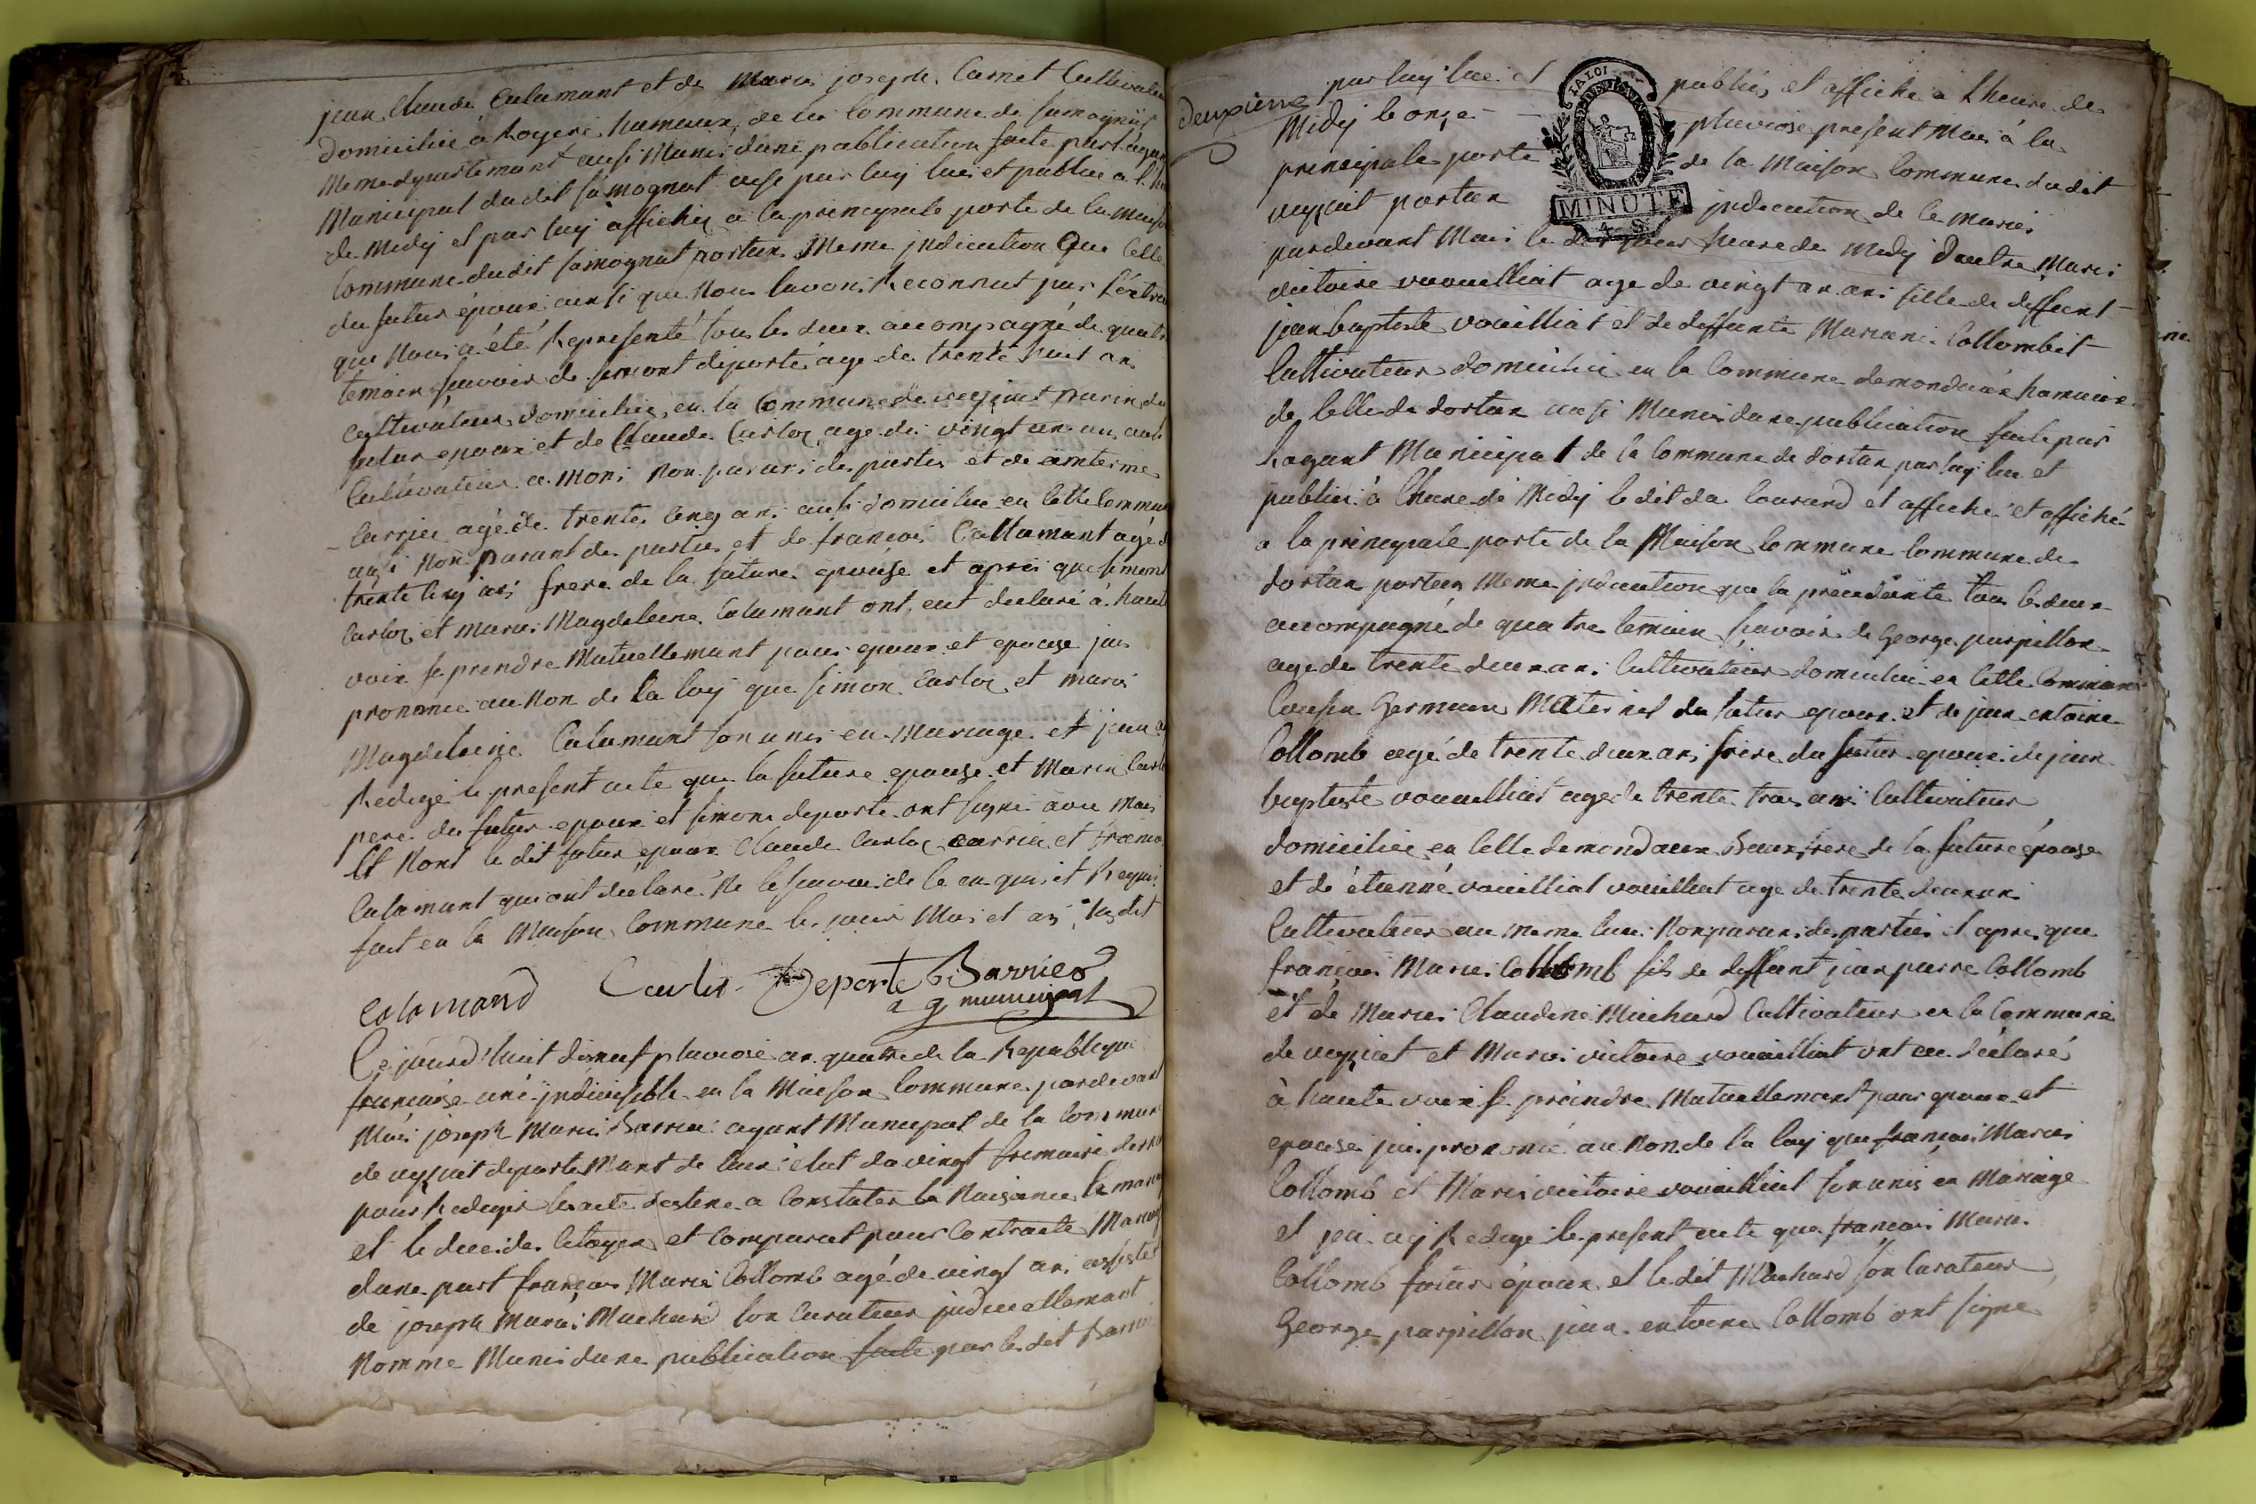 jean Claude Calamant et de Marie joseph Carnet Cultivateur
domicilié à Royere hameaux de la Commune de samognat
Meme departemant ausi Munis dune publication faite par lagent
Municipal dudit samognat ause par luy lue et publiée a l'heure
de Midy et par luy affichée a la principale porte de la Maison
Commune dudit samognat portan Meme jndication Que Celle
du futur epoux ainsi que Nous lavons Reconnut par l'extrait
que Nous a été Representé tous les deux accompagné de quatre
temoin sçavoir de simont deporte age de trente huit an
cultivateur domicilié en la Commune de veyziat parin du
futur epoux et de Claude Carloz age de vingt un an aussi
Cultivateur a Mons Non parans des parties et de
Carrier agé de trente cinq ans ausi domicilié en cette Commune
ausi Non parant des parties et de francois Callamant agé de
trente cinq ans frere de la future epouse et après que simont
Carloz et Marie Magdeleine Calamant ont eut declaré à haute
voix se prendre Mutuellemant pour epoux et epouse jai
prononcé au Non de la loy que simon Carloz et marie
Magdeleine Calamant son unis en Mariage et jai ay
Redigé le present acte que la future epouse et Marin Carloz
pere du futur epoux et simone deporte ont signé avec Moi
Et Nont le dit futur epoux Claude Carloz carrier et francois
Calamant qui ont declaré Ne le sçavoir de ce enquis et Requis
fait en la Maison Commune les jour Mois et an susdit
Calamand Carloz Deporte Barrier
ag municipal
Ce jourd'huit dixneuf pluviose an quatre de la Republique
francaise une jndivisible en la Maison Commune pardevant
Moi joseph Marie Barrier agant Municipal de la Commune
de veyziat departeMant de lain élut do vingt frimaire dernier
pour Rediger les acte destine a Constater la Naisance le mariage
et le deces des Citoyen et Comparut pour Contracte Mariage
dune part françois Marie Collomb agé de vingt ans assisté
de joseph Marie Machard son Curateur judiciellemant
Nomme Munis dune publication faite par le dit Barrier
deuxieme par luy lue et publiés et affiche a lheure de
Midy le onze pluviose present Mois à la
principale porte de la Maison Commune dudit
veyziat portan jndication de ce mariés
pardevant Mois le dit jour heure de Midy Dautre Marie
victoire vouailliat age de vingt an ans fille de deffunt
jean baptiste vouilliat et de deffunte Mariane Collombet
Cultivateur domicilié en la Commune demondaux hameaux
de Celle de dortan ausi Munis dune publication faite par
Lagant Municipal de la Commune de dortan par luy lue et
publiée à lheure de Midy le dit da Courand et affiche et affiché
a la principale porte de la Maison Commune Commune de
dortan portan Meme jndication que la precedante tous les deux
accompagné de quatre temoin sçavoir de George parpillon
age de trente deux ans Cultivateur domicilié en Cette Commune
Cousin Germain Maternel du futur epoux et de jean antoine
Collomb agé de trente deux ans frere du futur epoux de jean
baptiste vouailliat age de trente trois ans Cultivateur
domicilié en Celle de mondaux Beaux frere de la future épouse
et de étienne vouilliat vouilliat age de trente deux ans
Cultivateur au meme lieu Non parans des parties et apres que
françois Marie Collomb fils de deffunt jean pierre Collomb
et de Marie Claudine Machard Cultivateur en la Commune
de veyziat et Marie victoire vouailliat ont eu déclaré
à haute voix se prandre Mutuellemant pour epoux et
epouse jai prononcé au Non de la loy que françois Marie
Collomb et Marie victoire vouailliat son unis en Mariage
et jai ay Redigé le present acte que françois Marie
Collomb futur époux et le dit Machard son Curateur
George parpillon jean antoine Collomb ont signe
LA LOI
MINUTE
4. S.